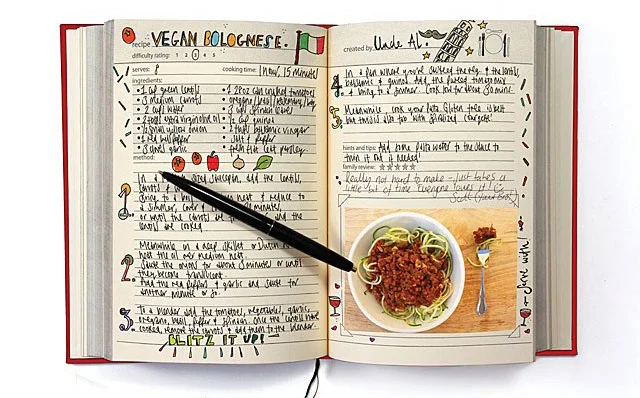 recipe VEGAN BOLOGNESE.
difficulty rating: 1 2 3 4 5
serves: 8 cooking time: 1 hour, 15 minutes
ingredients:
• 1 cup green lentils
• 3 medium carrots
• 2 cup water
• small yellow onion
• red bell pepper
• 3 cloves garlic
• 1 28oz can crushed tomatoes
• 3 cups spinach leaves
• 1/2 cup quinoa
• 2 tbsps balsamic vinegar
• salt & pepper
• fresh flat leaf parsley
method:
1.
In a sized saucepan, add the lentils,
carrots &
bring to a heat & reduce to
a simmer, cover & minutes,
or until the carrots are and the
lentils are cooked.
2.
Meanwhile in a deep skillet or Dutch
heat the oil over medium heat.
Saute the onions for about 8 minutes or until
they become translucent.
Add the red peppers & garlic and saute for
another minute or so.
3.
To a blender add the tomatoes, vegetables, garlic,
oregano, basil, pepper & spinach. Once the lentils have
cooked, remove the carrots & add them to the blender.
BLITZ IT UP!
created by: Uncle Al.
4.
In a pan where you've sauteed the veg, & the lentils,
balsamic & quinoa. Add the pureed tomatoes
& bring to a simmer. Cook for about 30 mins.
5.
Meanwhile, cook your pasta. Gluten free is best
but this is also with spiralized courgette!
hints and tips: Add some pasta water to the sauce to
thin it out if needed!
family review:
Really not hard to make - just takes a
little bit of time. Everyone loves it!
Scott (Your Bro).
Serve with!